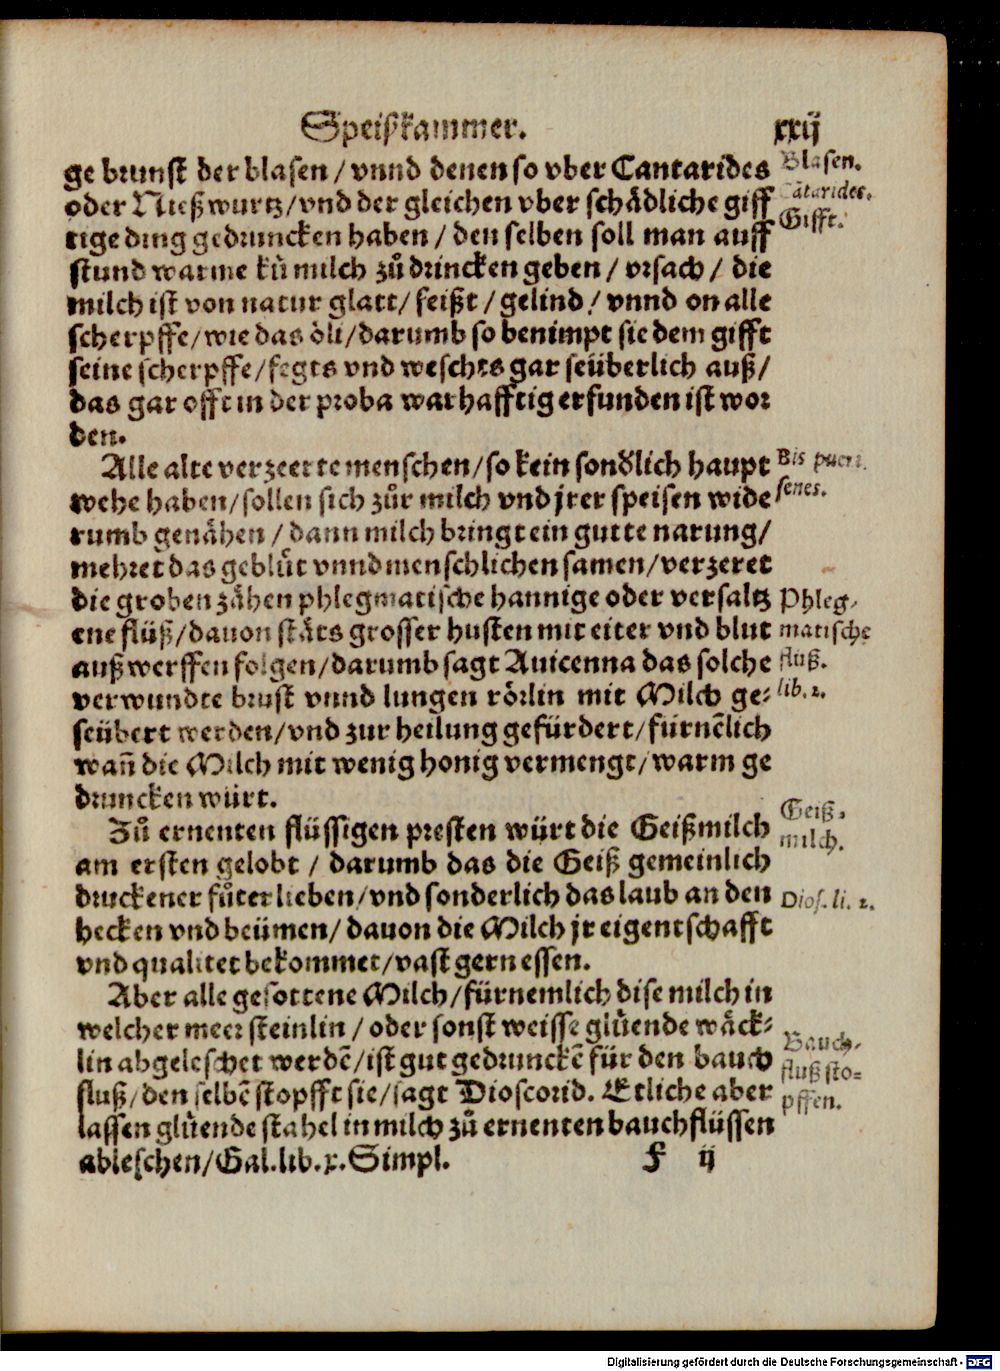 Speißkammer. xxij
ge brunst der blasen / vnnd denen so vber Cantarides
Blasen.
oder Nießwurtz/vnd der gleichen vber schädliche giff
Cātarides.
tige ding gedruncken haben / den selben soll man auff
Gifft.
stund warme ků milch zů drincken geben / vrsach / die
milch ist von natur glatt/ feißt / gelind / vnnd on alle
scherpffe/wie das öli/darumb so benimpt sie dem gifft
seine scherpffe/fegts vnd weschts gar seüberlich auß/
das gar offt in der proba warhafftig erfunden ist wor
den.
Alle alte verzeerte menschen/so kein sondlich haupt
Bis pueri.
wehe haben/sollen sich zůr milch vnd jrer speisen wide
senes.
rumb genähen / dann milch bringt ein gutte narung/
mehret das geblůt vnnd menschlichen samen/verzeret
die groben zähen phlegmatische hannige oder versaltz
Phleg-
ene flüß/dauon stäts grosser husten mit eiter vnd blut
matische
außwerffen folgen/darumb sagt Auicenna das solche
fluß.
verwundte brust vnnd lungen rörlin mit Milch ge-
lib. 2.
seübert werden/vnd zur heilung gefürdert/fürnēlich
wañ die Milch mit wenig honig vermengt/warm ge
druncken würt.
Zů ernenten flüssigen presten würt die Geißmilch
Geiß-
milch.
am ersten gelobt / darumb das die Geiß gemeinlich
druckener fůter lieben/vnd sonderlich das laub an den
Dios. li. 2.
hecken vnd beümen/ dauon die Milch jr eigentschafft
vnd qualitet bekommet/vast gern essen.
Aber alle gesottene Milch/fürnemlich dise milch in
welcher meer steinlin / oder sonst weisse glůende wäck-
Bauch-
lin abgeleschet werdē/ist gut gedrunckē für den bauch
fluß sto-
fluß/den selbē stopfft sie/sagt Dioscorid. Etliche aber
pffen.
lassen glůende stahel in milch zů ernenten bauchflüssen
ableschen/Gal.lib.x.Simpl. F ij
Digitalisierung gefördert durch die Deutsche Forschungsgemeinschaft - DFG